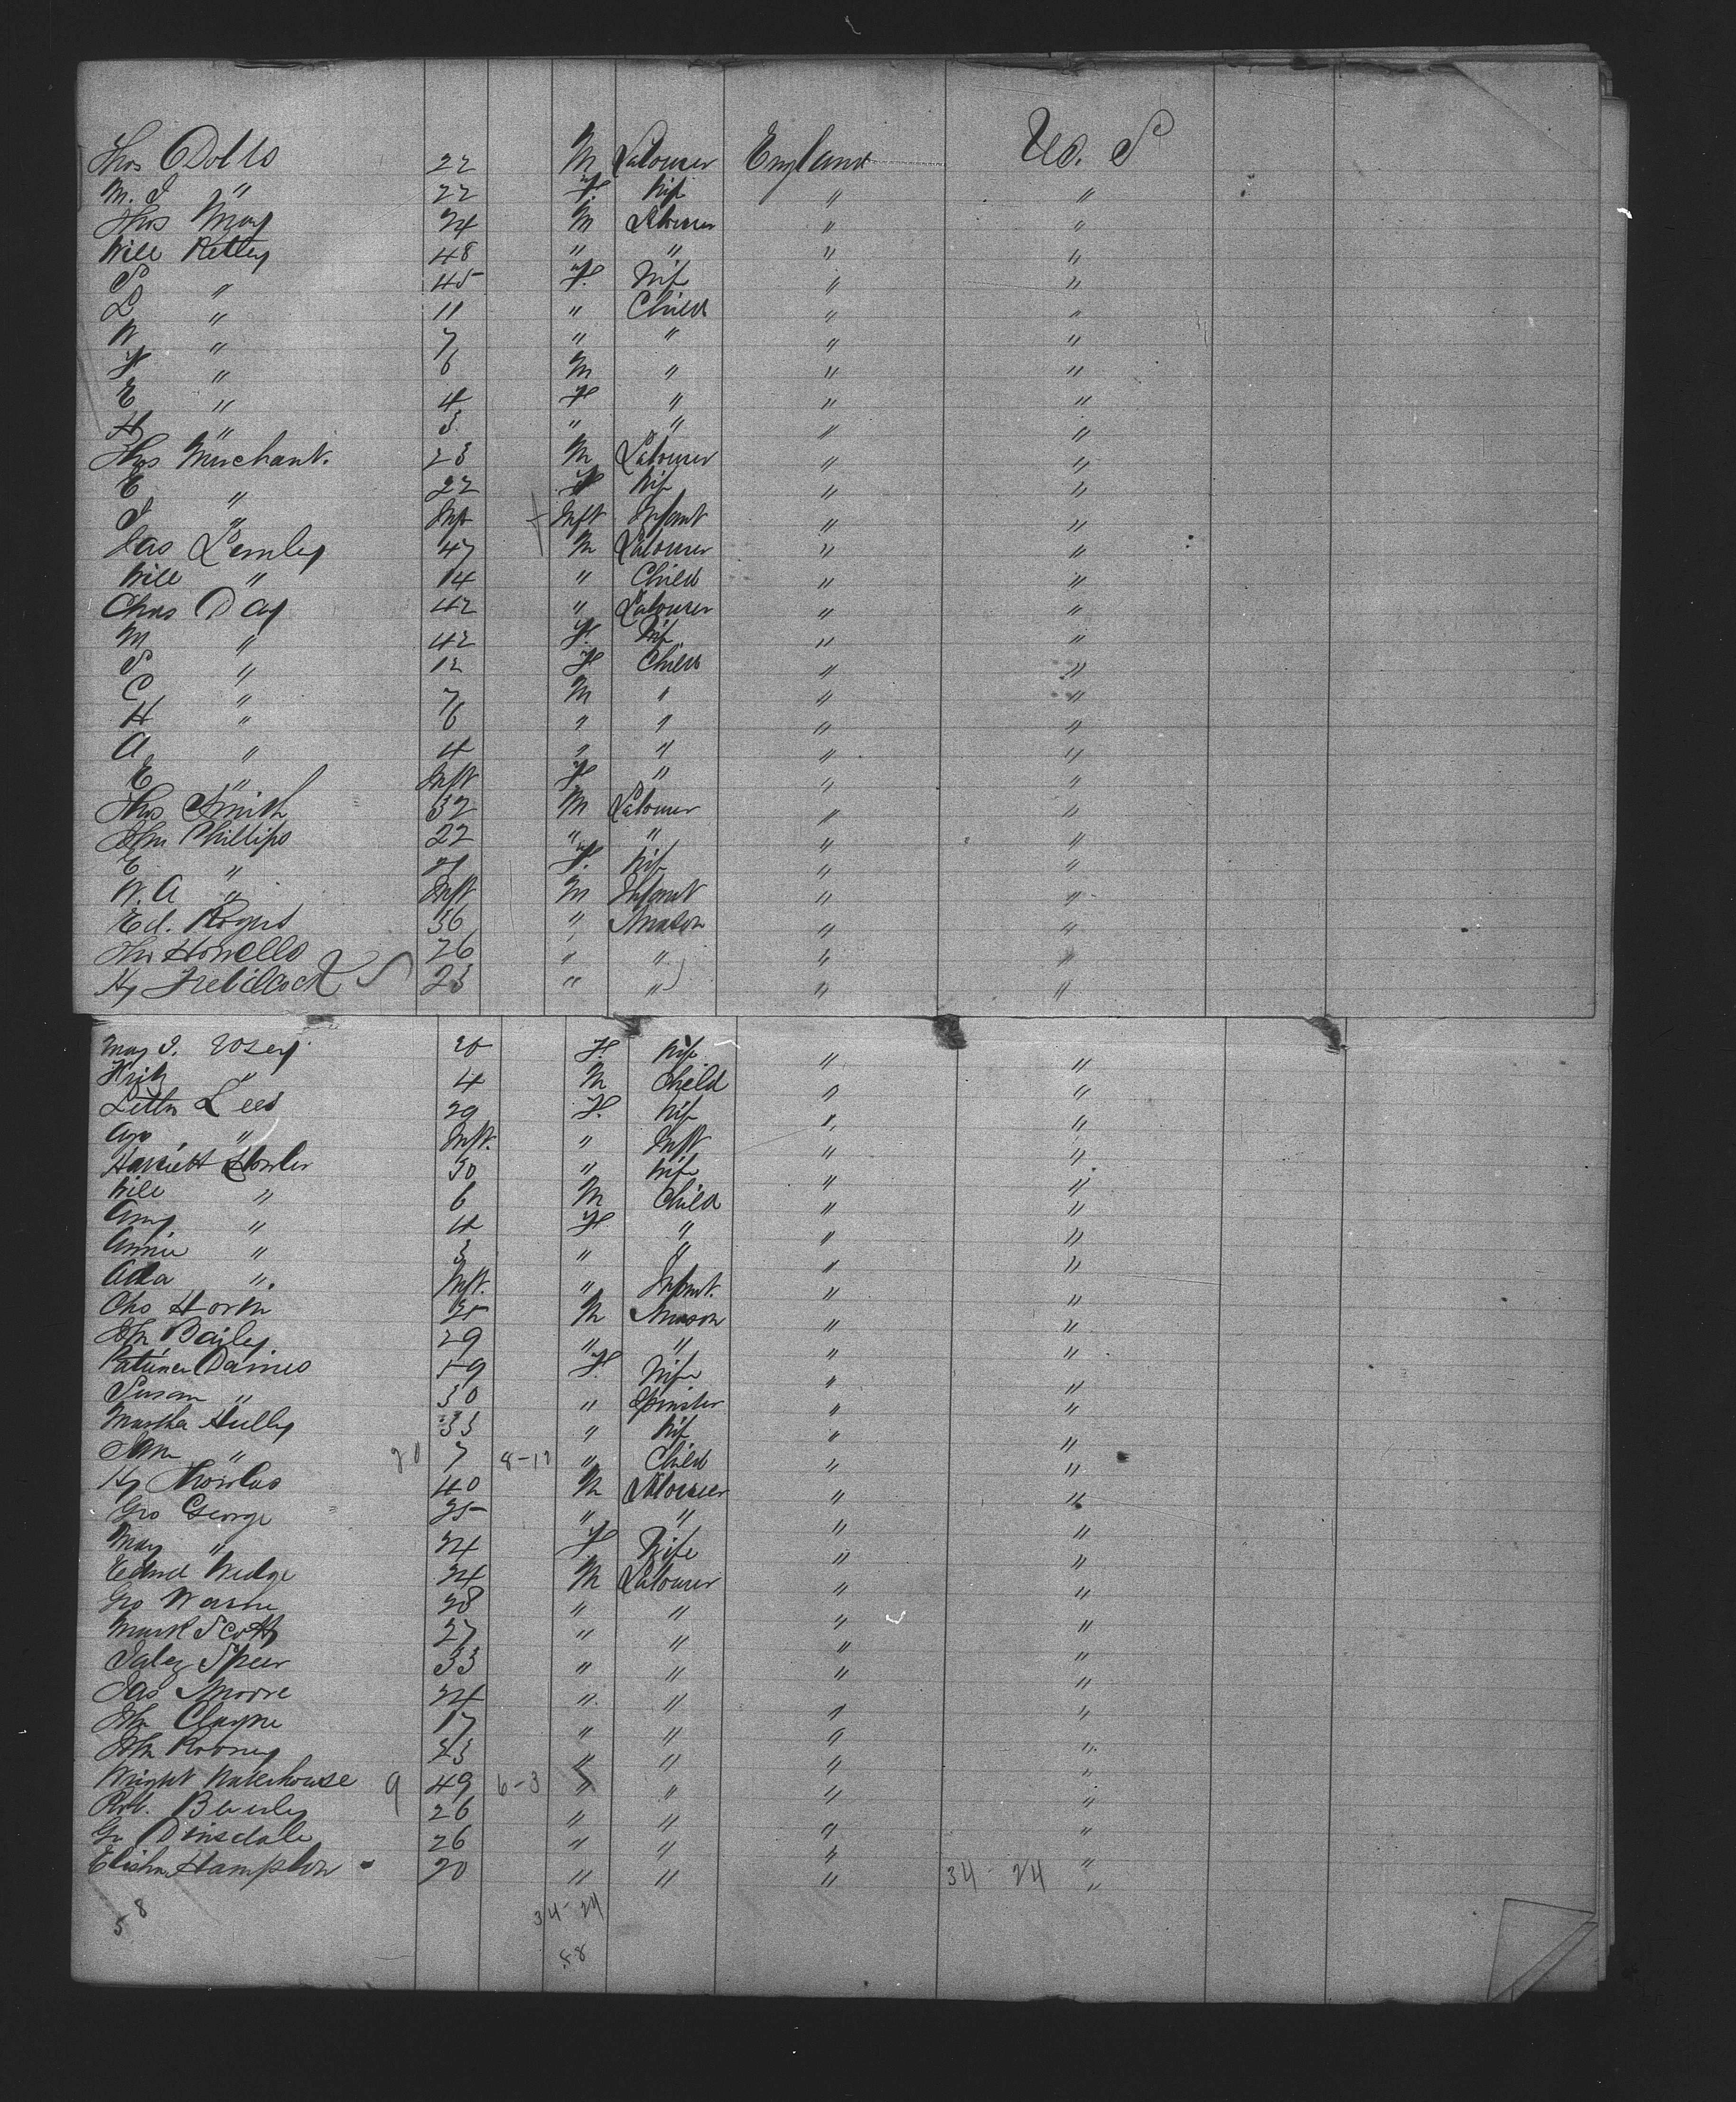 Thos Dolls 22 M Labourer England U. S
M. J " 22 F. Wife " "
Thos May 24 M Labourer " "
Will Kelley 48 " " " "
S " 45 F. Wife " "
L " 11 " Child " "
W " 7 " " " "
F " 6 M " " "
E " 4 F " " "
H " 3 " " " "
Thos Merchant. 23 M Labourer " "
E " 22 F Wife " "
J " Inft Inft Infant " "
Jas Lemley 47 M Labourer " "
Will " 14 " Child " "
Chas Day 42 " Labourer " "
M " 42 F. Wife " "
S " 12 F Child " "
C " 7 M " " "
H " 6 " " " "
A " 4 " " " "
E " Inft F " " "
Thos Smith 32 M Labourer " "
Jhn Phillips 22 " " " "
E " 21 F. Wife " "
W. A " Inft M Infant " "
Ed. Rogers 36 " Mason " "
Howells 26 " " " "
Hy Trebilcock 23 " " " "
May J. 26 F. Wife " "
" 4 M Child " "
Lees 29 F. Wife " "
" Inft. " Inft " "
Harriett 30 " Wife " "
Will " 6 M Child " "
Amy " 4 F. " " "
Annie " 3 " " " "
Ada " Inft. " Infant. " "
Chs Horth 35 M Mason " "
Jhn Bailey 29 " " " "
Daines 59 F. Wife " "
Susan " 30 " Spinster " "
Martha Hulley 33 " Wife " "
" 20 7 8-12 " Child " "
Hy 40 M Labourer " "
Geo George 25 " " " "
May " 24 F Wife " "
Edwd Wedge 24 M Labourer " "
Geo Warne 28 " " " "
Mark Scott 27 " " " "
Jabez Speer 33 " " " "
Jas Moore 24 " " " "
Jhn Clayne 17 " " " "
Jhn Rooney 23 " " " "
Wright Waterhouse 9 49 6-3 " " " "
Robt. Beverley 26 " " " "
Geo Dinsdale 26 " " " "
Elisha Hampton 20 " " " 34-24 "
58 34-24
58